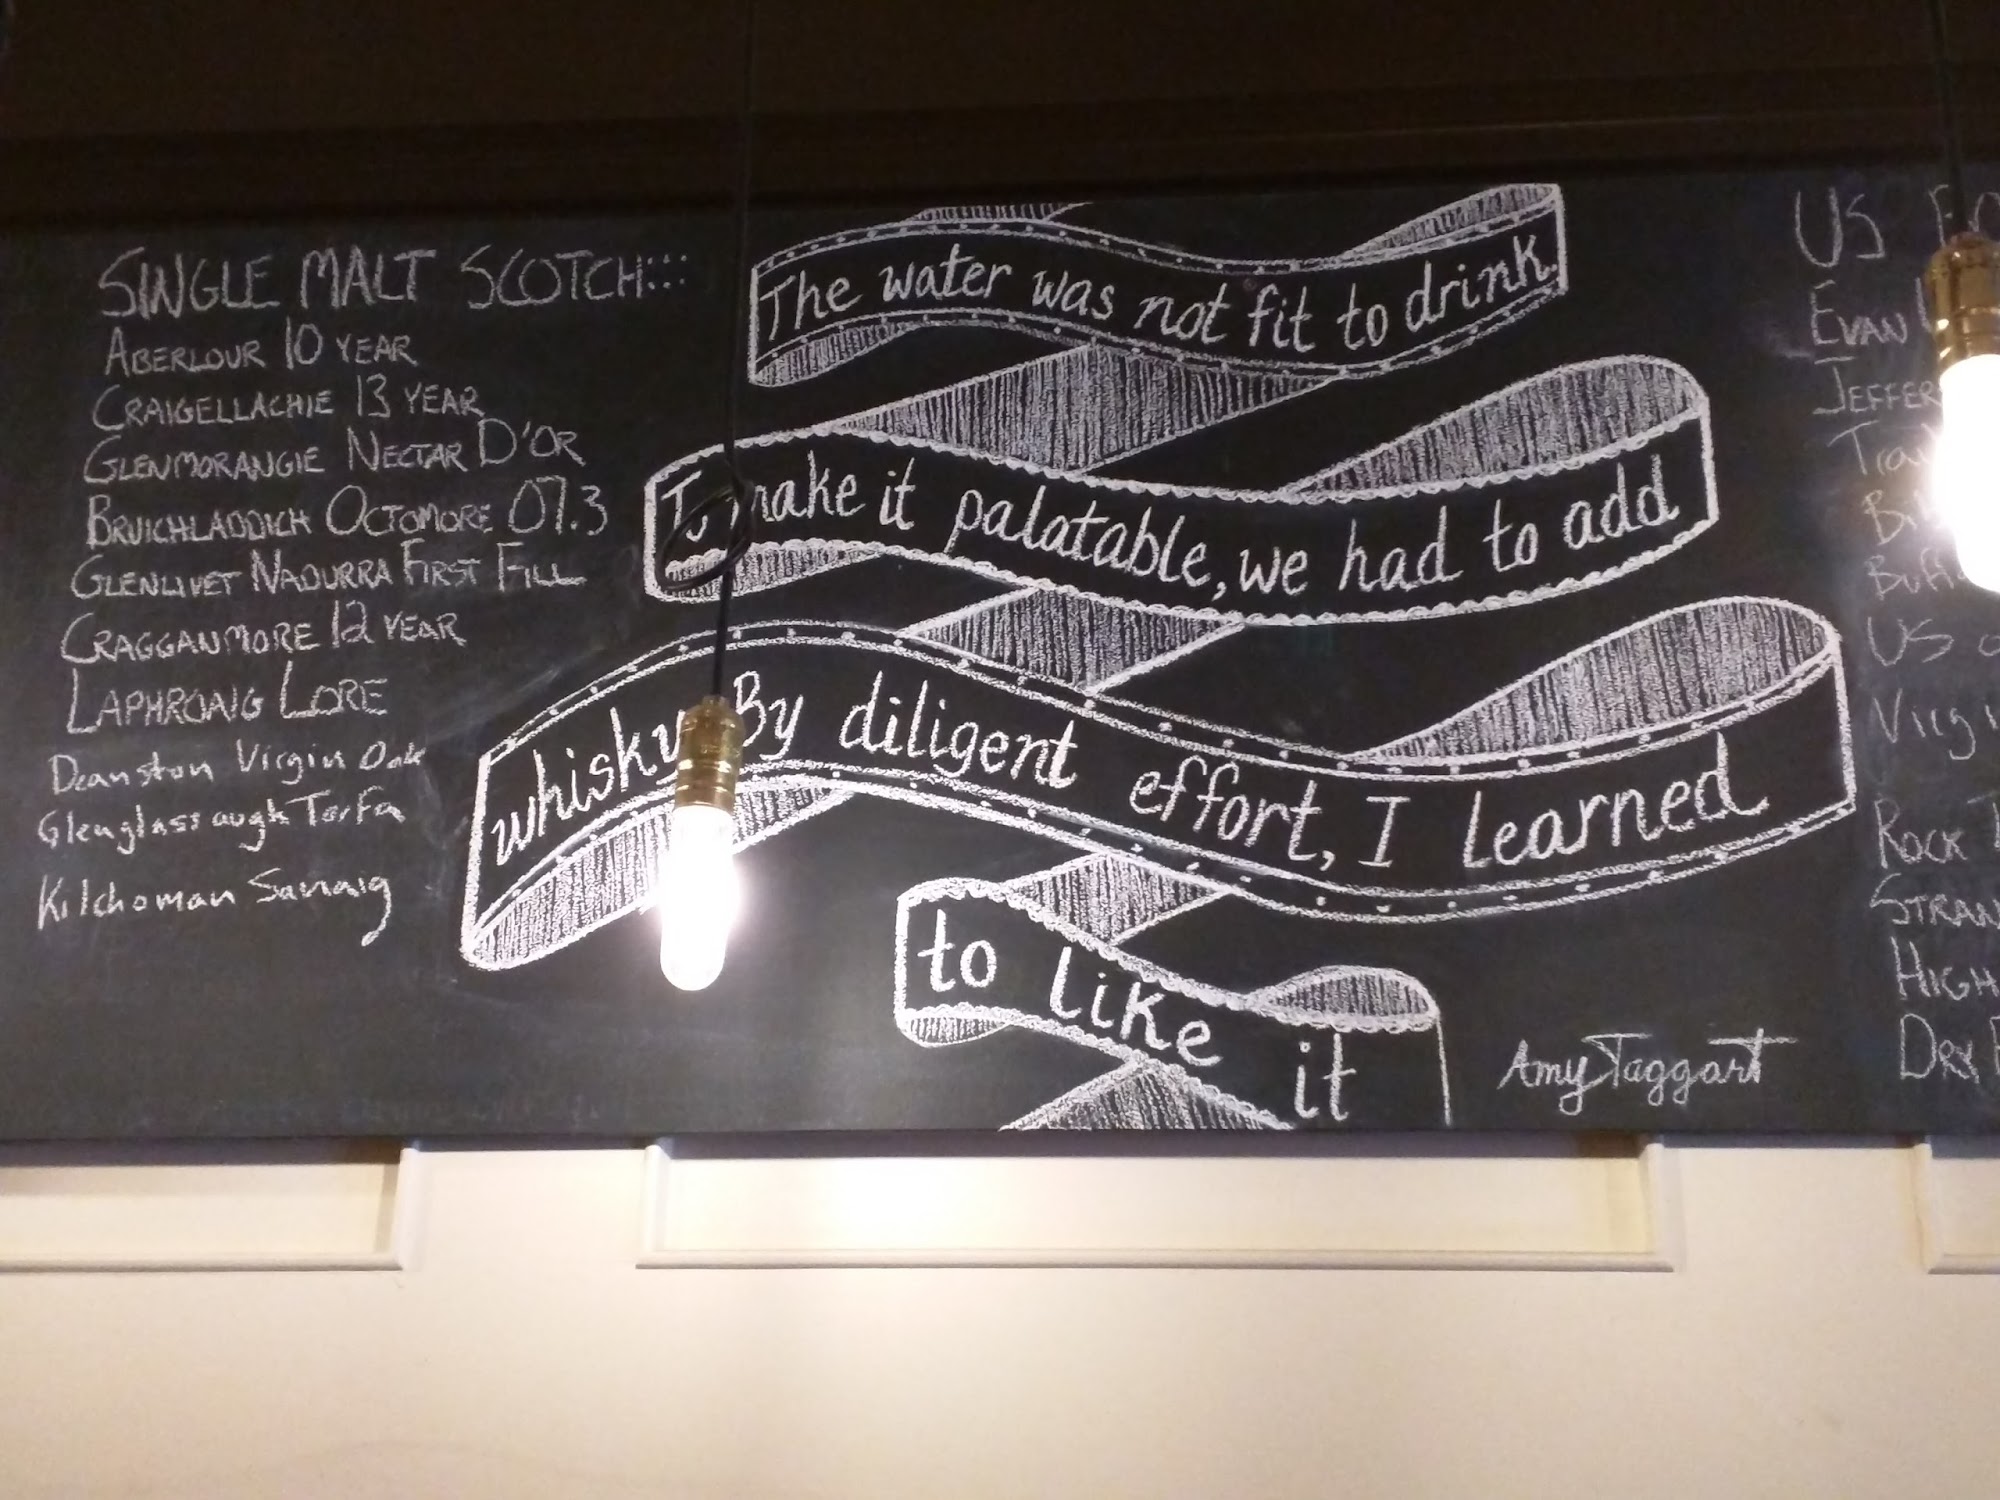 SINGLE MALT SCOTCH:::
ABERLOUR 10 YEAR
CRAIGELLACHIE 13 YEAR
GLENMORANGIE NECTAR D'OR
BRUICHLADDICH OCTOMORE 07.3
GLENLIVET NADURRA FIRST FILL
CRAGGANMORE 12 YEAR
LAPHROAIG LORE
Deanston Virgin Oak
Glenglassaugh Torfa
Kilchoman Sanaig
The water was not fit to drink.
To make it palatable, we had to add
whisky. By diligent effort, I learned
to like it
Amy Taggart
US
EVAN
JEFFER
US
Virgi
ROCK
STRAN
HIGH
DRY